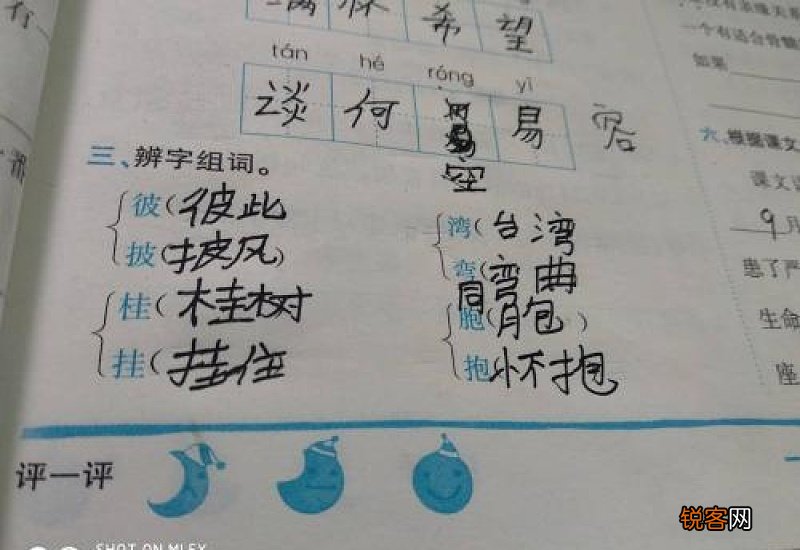 满怀希望
tán hé róng yì
谈何易容
空
三、辨字组词。
彼(彼此
披(披风)
桂(桂树
挂(挂住
湾(台湾
弯(弯曲
胞(同胞)
抱 怀抱
评一评
一个有适合骨髓
如果
六、根据课文
课文
9月
患了严
生命
座
SHOT ON MI 6X
锐客网